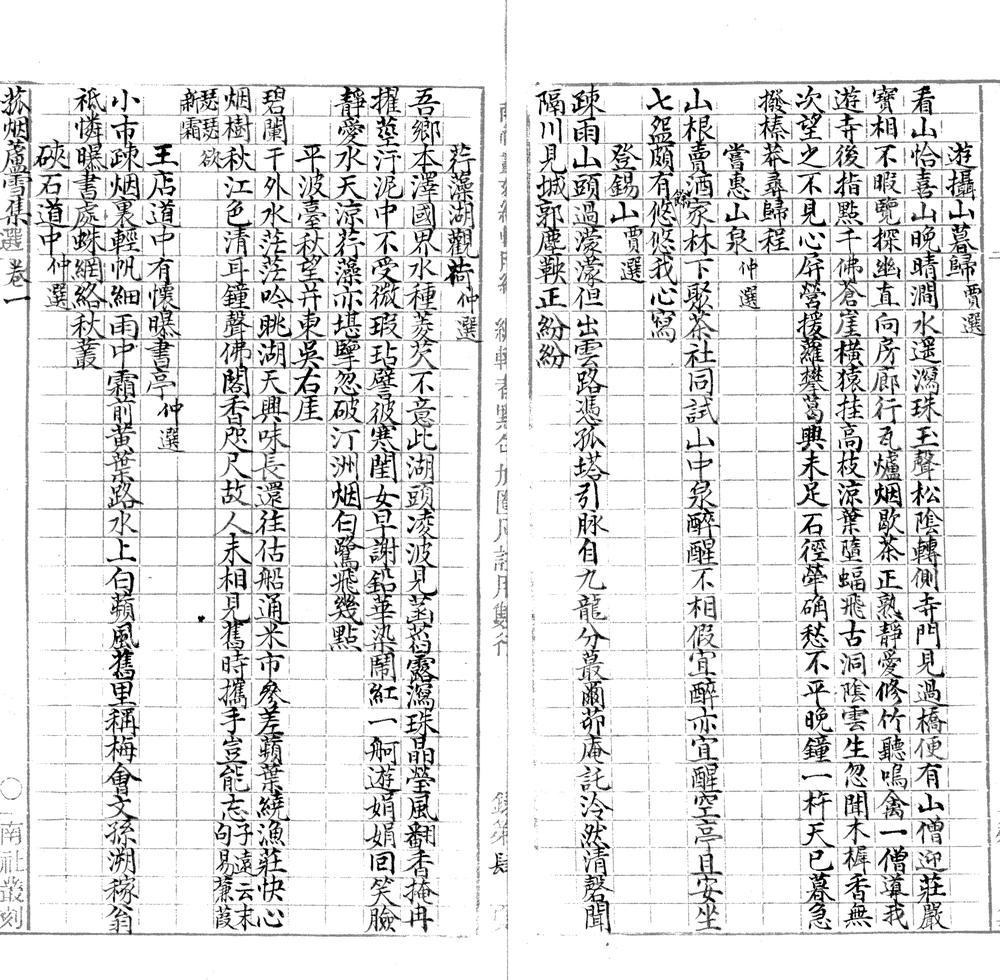 遊攝山暮歸賈選
看山恰喜山晚晴澗水遥瀉珠玉聲松陰轉側寺門見過橋便有山僧迎莊嚴
寶相不暇覽探幽直向房廊行瓦爐烟歇茶正熟靜愛修竹聽鳴禽一僧導我
遊寺後指點千佛蒼崖橫猿挂高枝涼葉墮蝠飛古洞陰雲生忽聞木樨香無
次望之不見心屏營援蘿攀葛興未足石徑犖确愁不平晚鐘一杵天已暮急
撥榛莽尋歸程
嘗惠山泉仲選
山根賣酒家林下聚茶社同試山中泉醉醒不相假宜醉亦宜醒空亭且安坐
七盌頗有餘悠悠我心寫
登錫山賈選
疎雨山頭過濛濛但出雲路憑孤塔引脉自九龍分蕞爾茆庵託泠然清磬聞
隔川見城郭塵鞅正紛紛
荇藻湖觀荷仲選
吾鄉本澤國界水種菱芡不意此湖頭凌波見菡萏露瀉珠晶瑩風翻香掩冉
擢莖汙泥中不受微瑕玷譬彼寒閨女早謝鉛華染鬧紅一舸遊娟娟回笑臉
靜愛水天涼荇藻亦堪擥忽破汀洲烟白鷺飛幾點
平波臺秋望幷柬吳右厓
碧闌干外水茫茫吟眺湖天興味長還往估船通米市參差蘋葉繞漁莊快心
烟樹秋江色清耳鐘聲佛閣香咫尺故人未相見舊時攜手豈能忘子遠云末句易蒹葭
瑟瑟欲新霜
王店道中有懷曝書亭仲選
小市疎烟裏輕帆細雨中霜前黃葉路水上白蘋風舊里稱梅會文孫溯稼翁
祗憐曝書處蛛網絡秋叢
硤石道中仲選
菰烟蘆雪集選 卷一
〇南社叢刻